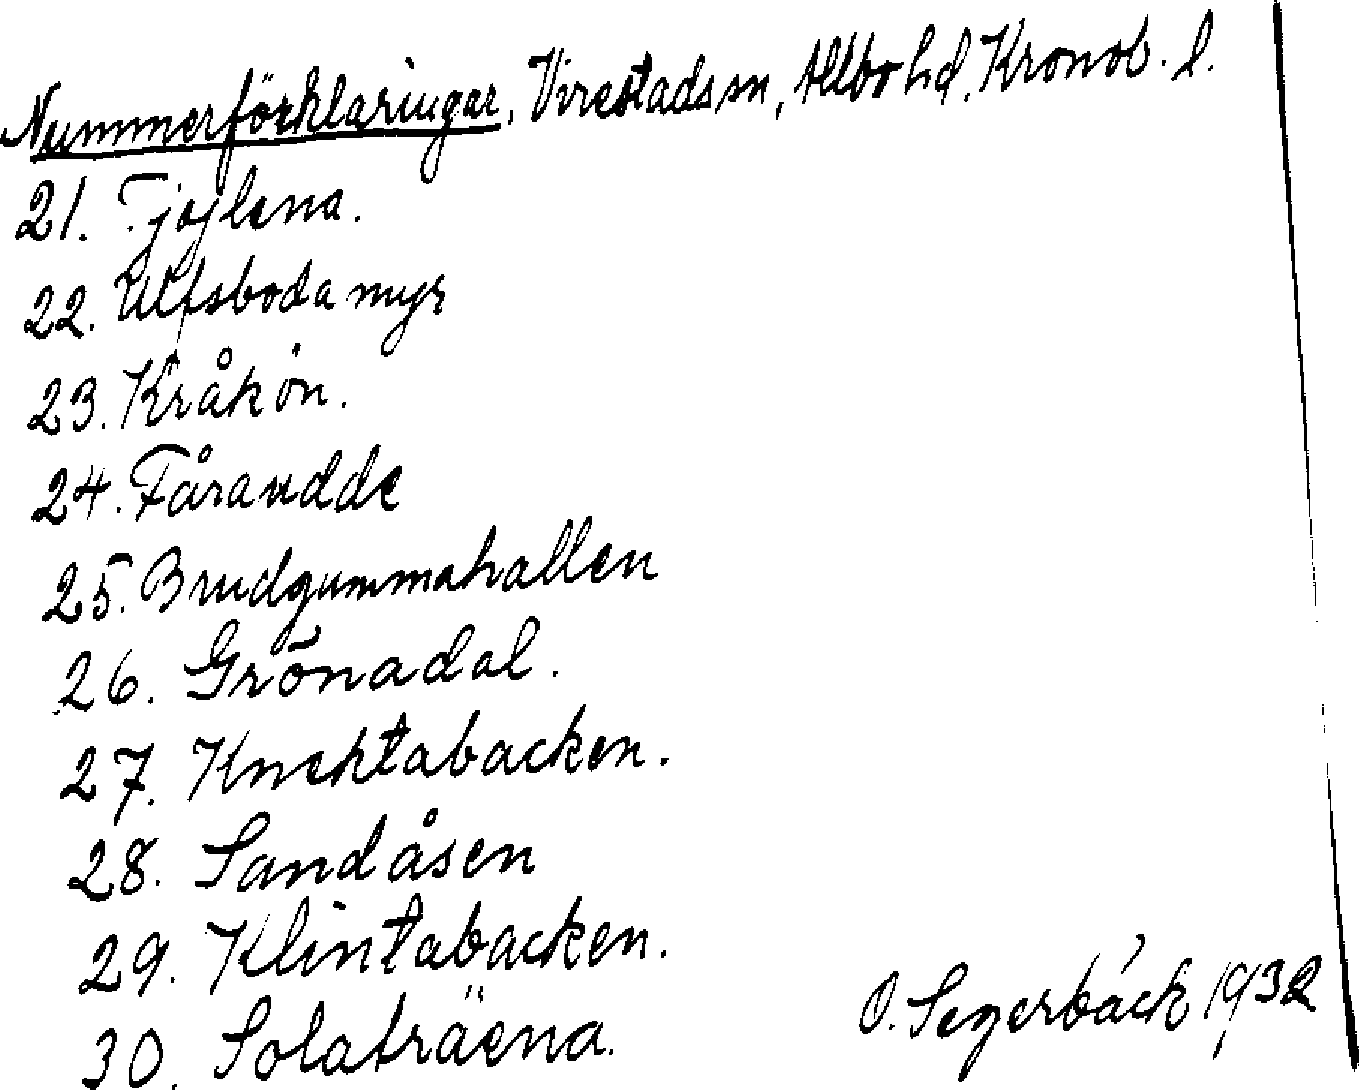 Nummerförklaringar, Virestads sn, Allbo hd. Kronob. l.
21. Tjojlena.
22. Ulfsboda myr
23. Kråkön.
24. Fåraudde
25. Brudgummahallen
26. Grönadal.
27. Knektabacken.
28. Sandåsen
29. Klintabacken.
30. Solaträena.
O. Segerbäck 1932